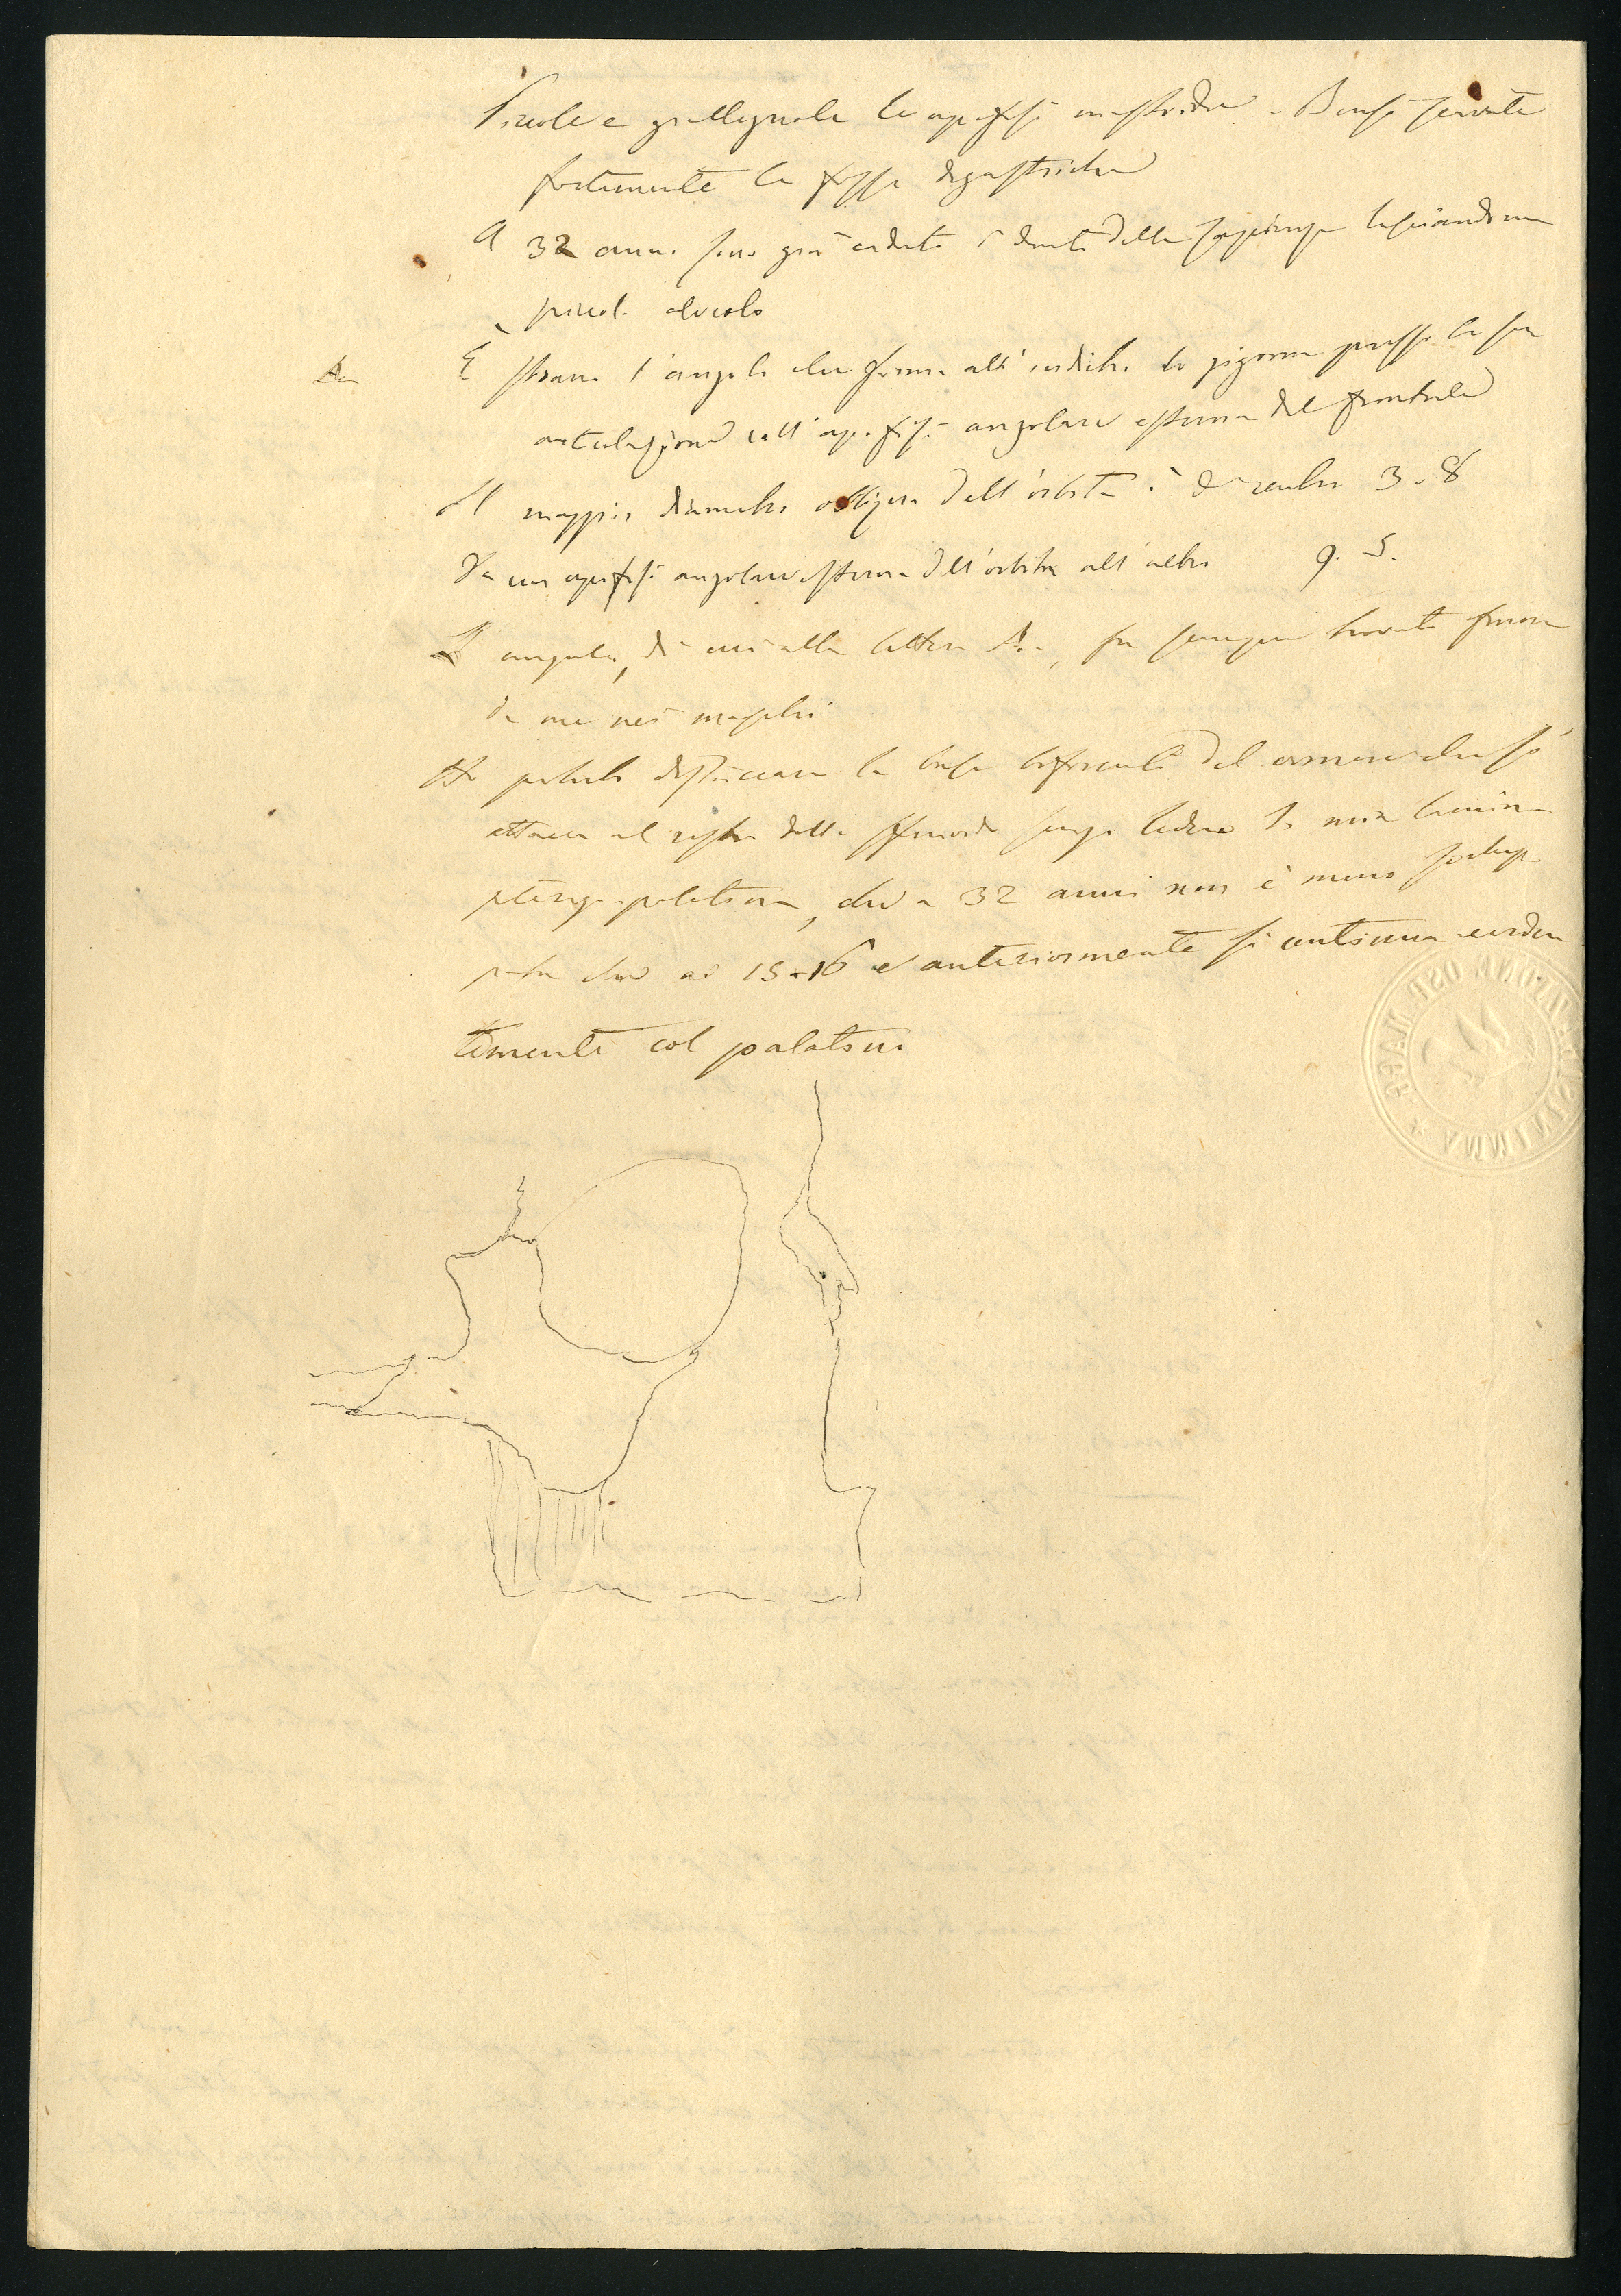 Piccole e grallegnole le apofisi mastoidee - Bensì scavate
fortemente le fosse digastriche
A 32 anni sono già caduti i denti della sapienza lasciandone
piccol. alveolo
A. È strano l'angolo che forma all'indietro lo zigoma presso la sua
articolazione coll'apofisi angolare esterna del frontale
Il maggior diametro obliquo dell'orbita è di centim 3.8
Da un apofisi angolare esterna dell'orbita all'altra 9. 5.
L'angolo, di cui alla lettera A., fu sempre trovato finora
da me nei maschi
Ho potuto distaccare la base biforcuta del vomere che si
attacca al rostro dello sfenoide senza ledere la mia lamina
pterigo-palatina, che a 32 anni non è meno svilup
pata che ai 15-16 e anteriormente si continua eviden
temente col palatino
VANNINI OSP. MAGG.